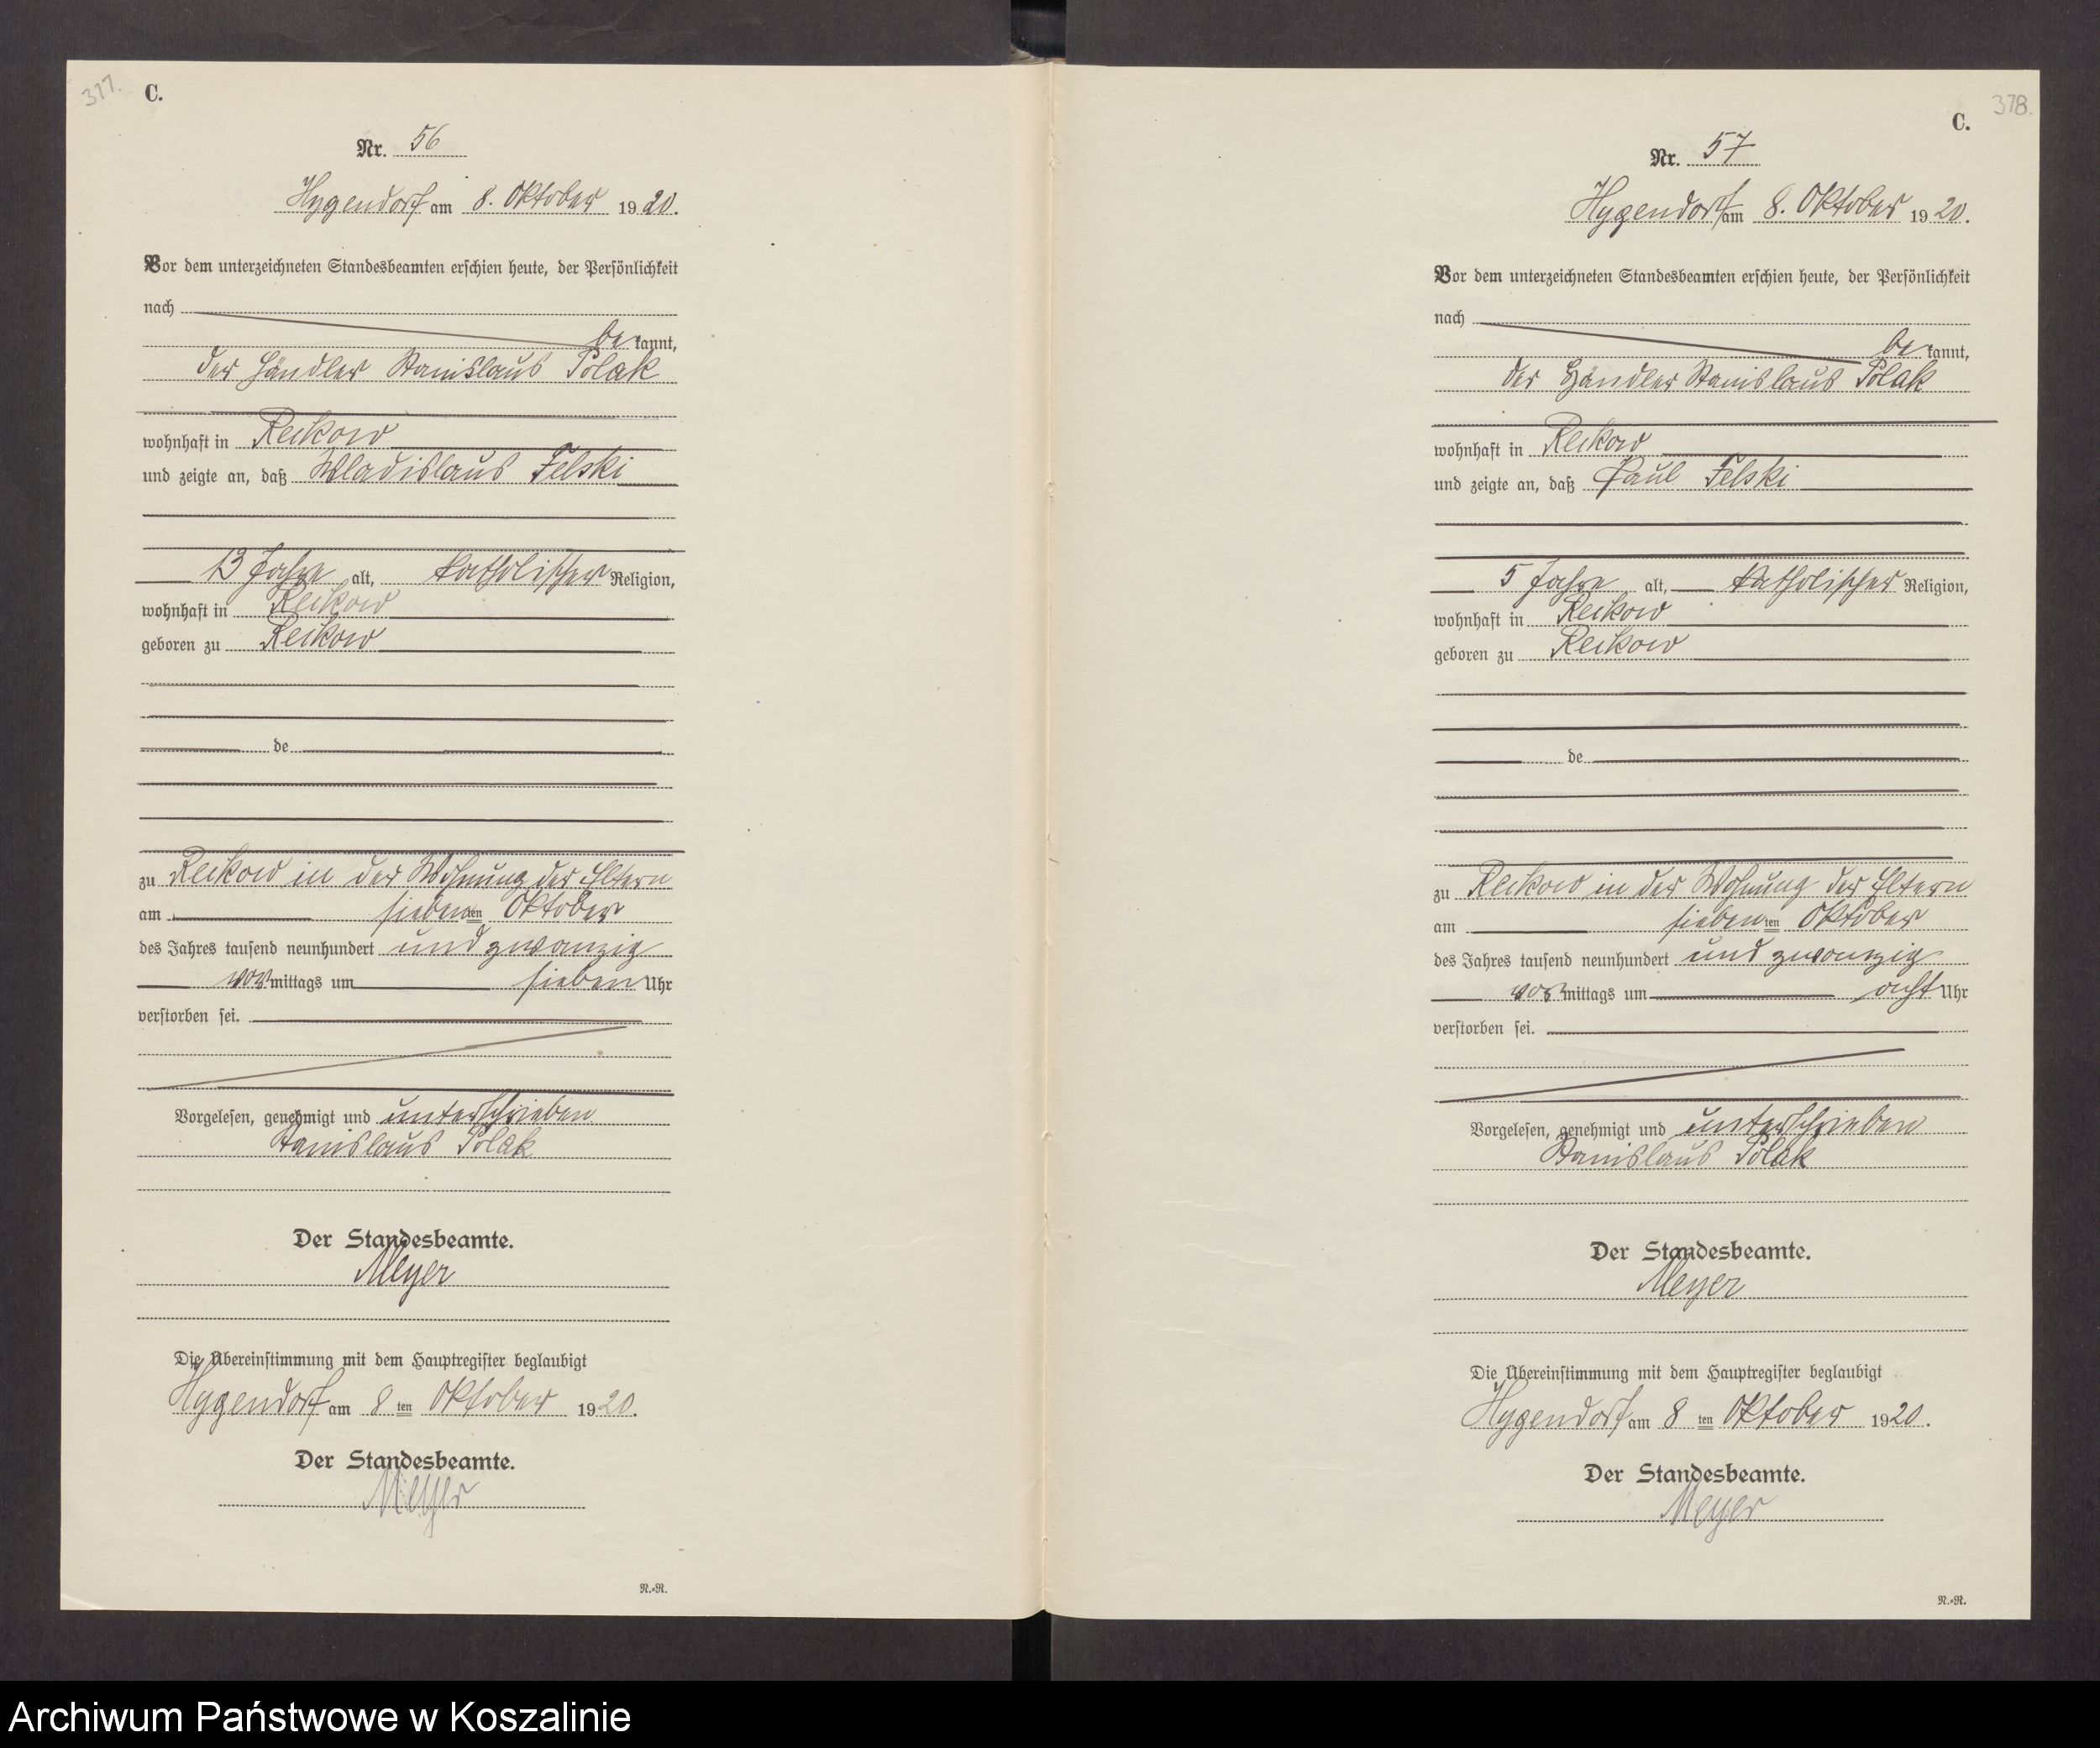 377.
C.
Nr. 56
Hygendorf am 8. Oktober 1920.
Vor dem unterzeichneten Standesbeamten erschien heute, der Persönlichkeit
nach
bekannt,
der Händler Stanislaus Polak
wohnhaft in Reikow
und zeigte an, daß Wladislaus Felski
13 Jahre alt, katholischer Religion,
wohnhaft in Reikow
geboren zu Reikow
de
zu Reikow in der Wohnung der Eltern
am siebenten Oktober
des Jahres tausend neunhundert und zwanzig
vormittags um sieben Uhr
verstorben sei.
Vorgelesen, genehmigt und unterschrieben
Stanislaus Polak
Der Standesbeamte.
Meyer
Die Übereinstimmung mit dem Hauptregister beglaubigt
Hygendorf am 8ten Oktober 1920.
Der Standesbeamte.
Meyer
N.=R.
378.
C.
Nr. 57
Hygendorf am 8. Oktober 1920.
Vor dem unterzeichneten Standesbeamten erschien heute, der Persönlichkeit
nach
bekannt,
der Händler Stanislaus Polak
wohnhaft in Reikow
und zeigte an, daß Paul Felski
5 Jahre alt, katholischer Religion,
wohnhaft in Reikow
geboren zu Reikow
de
zu Reikow in der Wohnung der Eltern
am siebenten Oktober
des Jahres tausend neunhundert und zwanzig
vormittags um acht Uhr
verstorben sei.
Vorgelesen, genehmigt und unterschrieben
Stanislaus Polak
Der Standesbeamte.
Meyer
Die Übereinstimmung mit dem Hauptregister beglaubigt
Hygendorf am 8ten Oktober 1920.
Der Standesbeamte.
Meyer
N.=R.
Archiwum Państwowe w Koszalinie